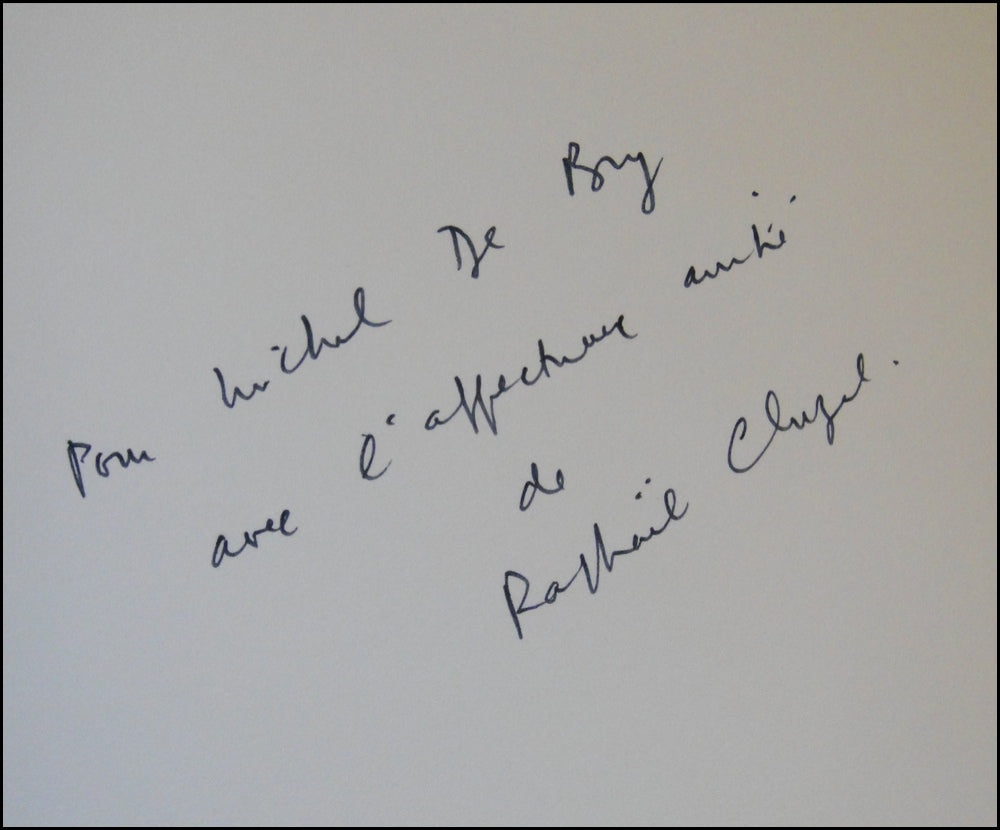 Pour Michel De Bry
avec l'affectueuse amitié
de
Raphaël Cluzel.